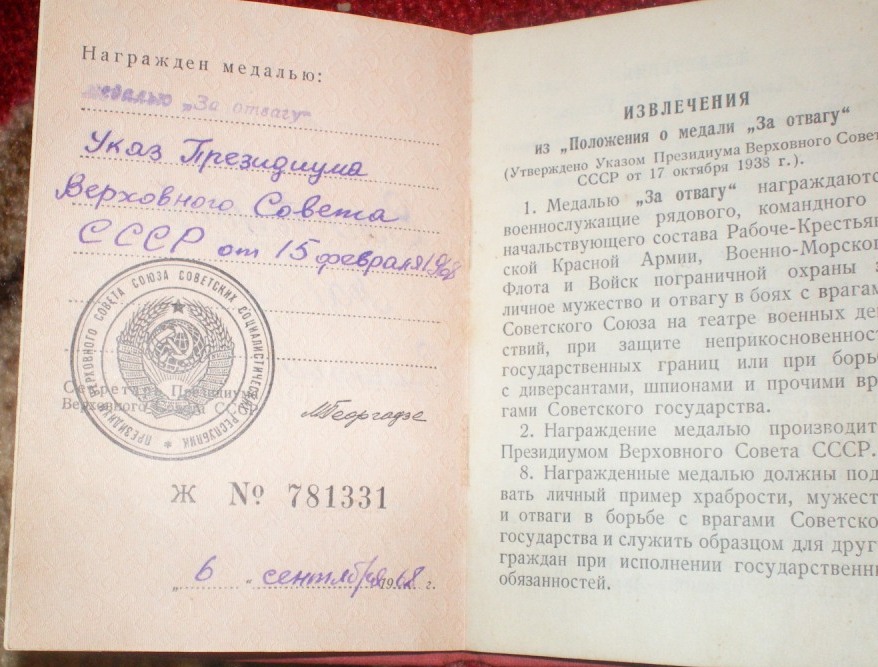 Награжден медалью:
медалью „За отвагу"
Указ Президиума
Верховного Совета
СССР от 15 февраля 1968
ПРЕЗИДИУМ ВЕРХОВНОГО СОВЕТА СОЮЗА СОВЕТСКИХ СОЦИАЛИСТИЧЕСКИХ РЕСПУБЛИК
Секретарь Президиума
Верховного Совета СССР
МГеоргадзе
Ж № 781331
„ 6 " сентября 1968 г.
ИЗВЛЕЧЕНИЯ
из „Положения о медали „За отвагу"
(Утверждено Указом Президиума Верховного Совет
СССР от 17 октября 1938 г.).
1. Медалью „За отвагу" награждаютс
военнослужащие рядового, командного
начальствующего состава Рабоче-Крестьян
ской Красной Армии, Военно-Морског
Флота и Войск пограничной охраны з
личное мужество и отвагу в боях с врагам
Советского Союза на театре военных дей
ствий, при защите неприкосновенност
государственных границ или при борьб
с диверсантами, шпионами и прочими вра
гами Советского государства.
2. Награждение медалью производит
Президиумом Верховного Совета СССР.
8. Награжденные медалью должны под
вать личный пример храбрости, мужест
и отваги в борьбе с врагами Советско
государства и служить образцом для друг
граждан при исполнении государственны
обязанностей.